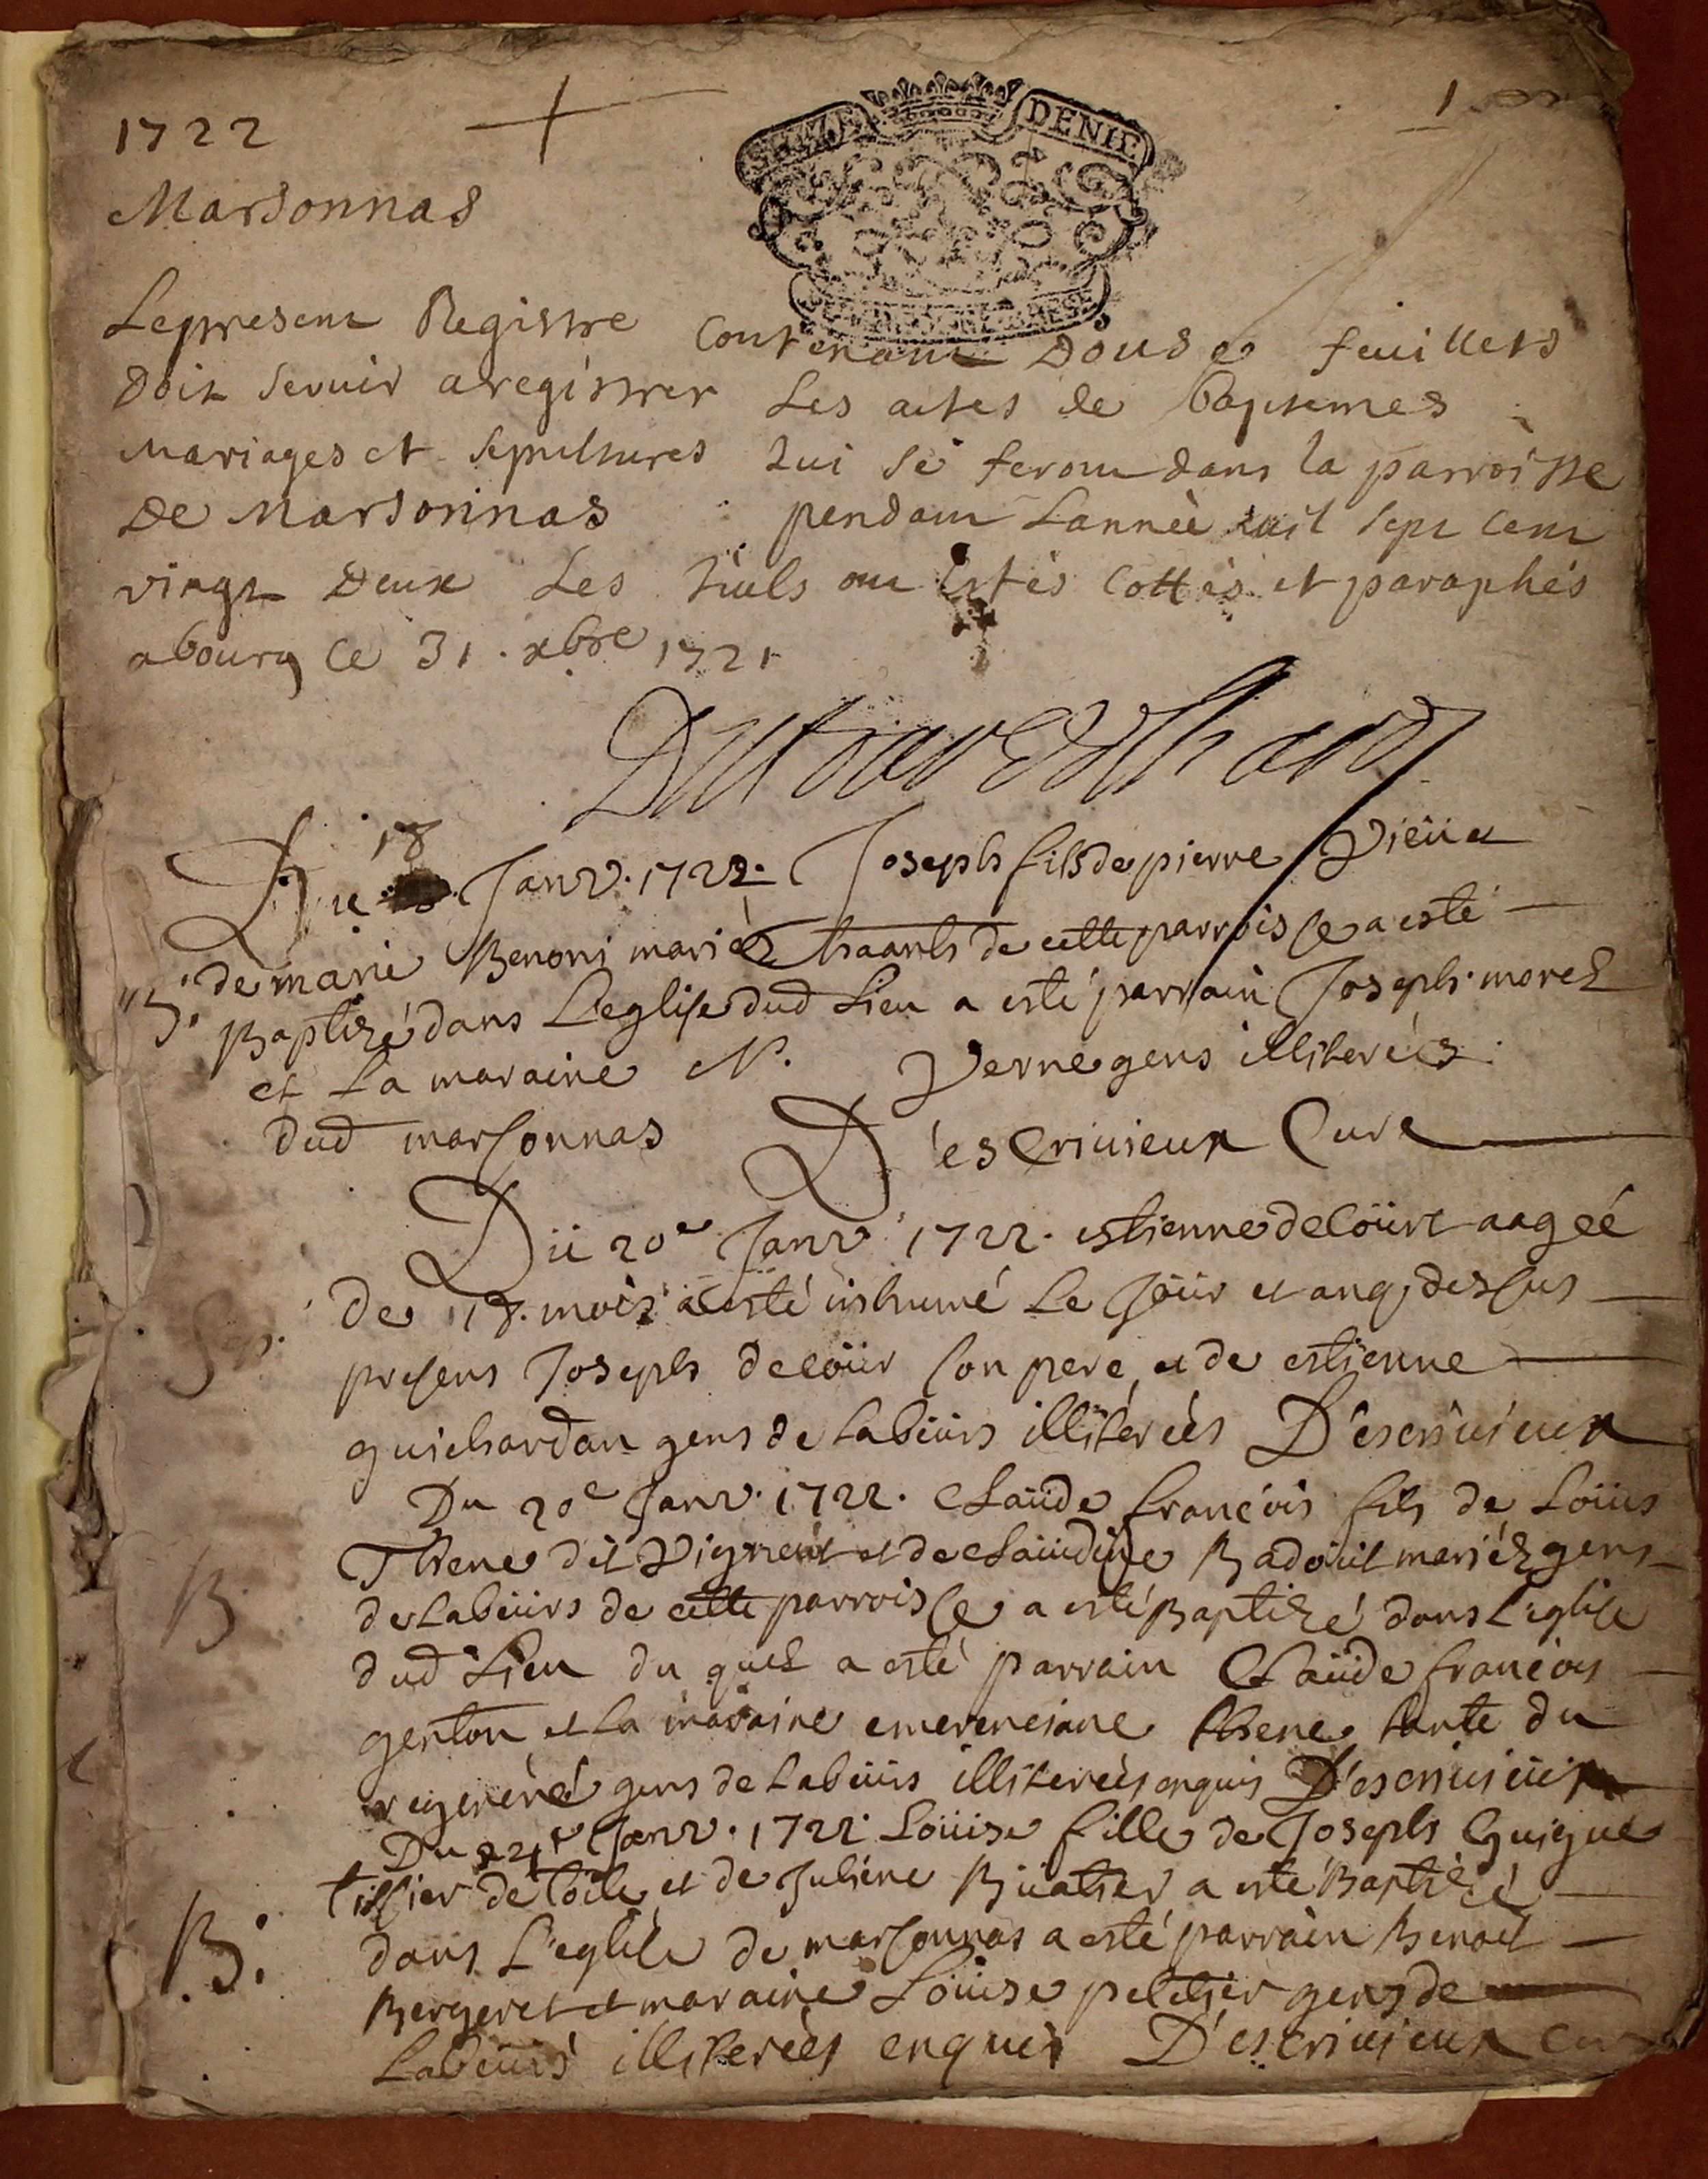 1722
1
SEIZE DENIE.
Marsonnas
Lepresent Registre Contenant Douse feuillets
Doit Servir aregistrer Les actes de Baptemes
Mariages et Sepultures qui se feront dans la parroisse
De Marsonnas pendant Lanneè mil sept cent
vingt Deux Les quels ont estés Cottés et paraphés
abourg ce 31. xbre 1721
Du 18 Janv. 1722. Joseph fils de pierre
de marie Benoni mariéz de cette parroisse a esté
B.
Baptizé dans L'eglise dud Lieu a esté parrain Joseph morel
et La maraine N. Verne gens illiterés
dud marsonnas D'escrivieux Cure
Dü 20e Janv 1722. estienne decöurt aagéé
de 18. mois a esté inhumé Le Joür et an dessus
Sep.
presens Joseph decöür son pere et de estienne
guichardan gens de Labeürs illiterés D'escrivieux
Du 20e Janv. 1722. Claüde françois fils de Loüis
Thene dit et de Claüdine Badoüit mariéz gens
B
de Labeürs de cette parroisse a esté Baptizé dans L'eglise
dud Lieu du quel a esté parrain Claüde françois
genton et La maraine emerenciane thene tante du
regeneré gens de Labeürs illiterés enquis D'escrivieüx
Du Janv. 1722. Loüise fille de Joseph Guigue
tissier de toile et de Juliene Büatier a esté Baptizé
B.
dans L'eglise de marsonnas a esté parrain Benoit
Bergeret et maraine Loüise peletier gens de
Labeürs illiterés enquis D'escrivieux